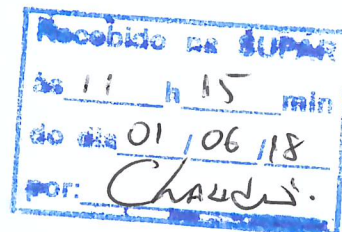 Recebido na SUPAR
às 11 h 15 min
do dia 01 / 06 / 18
por: